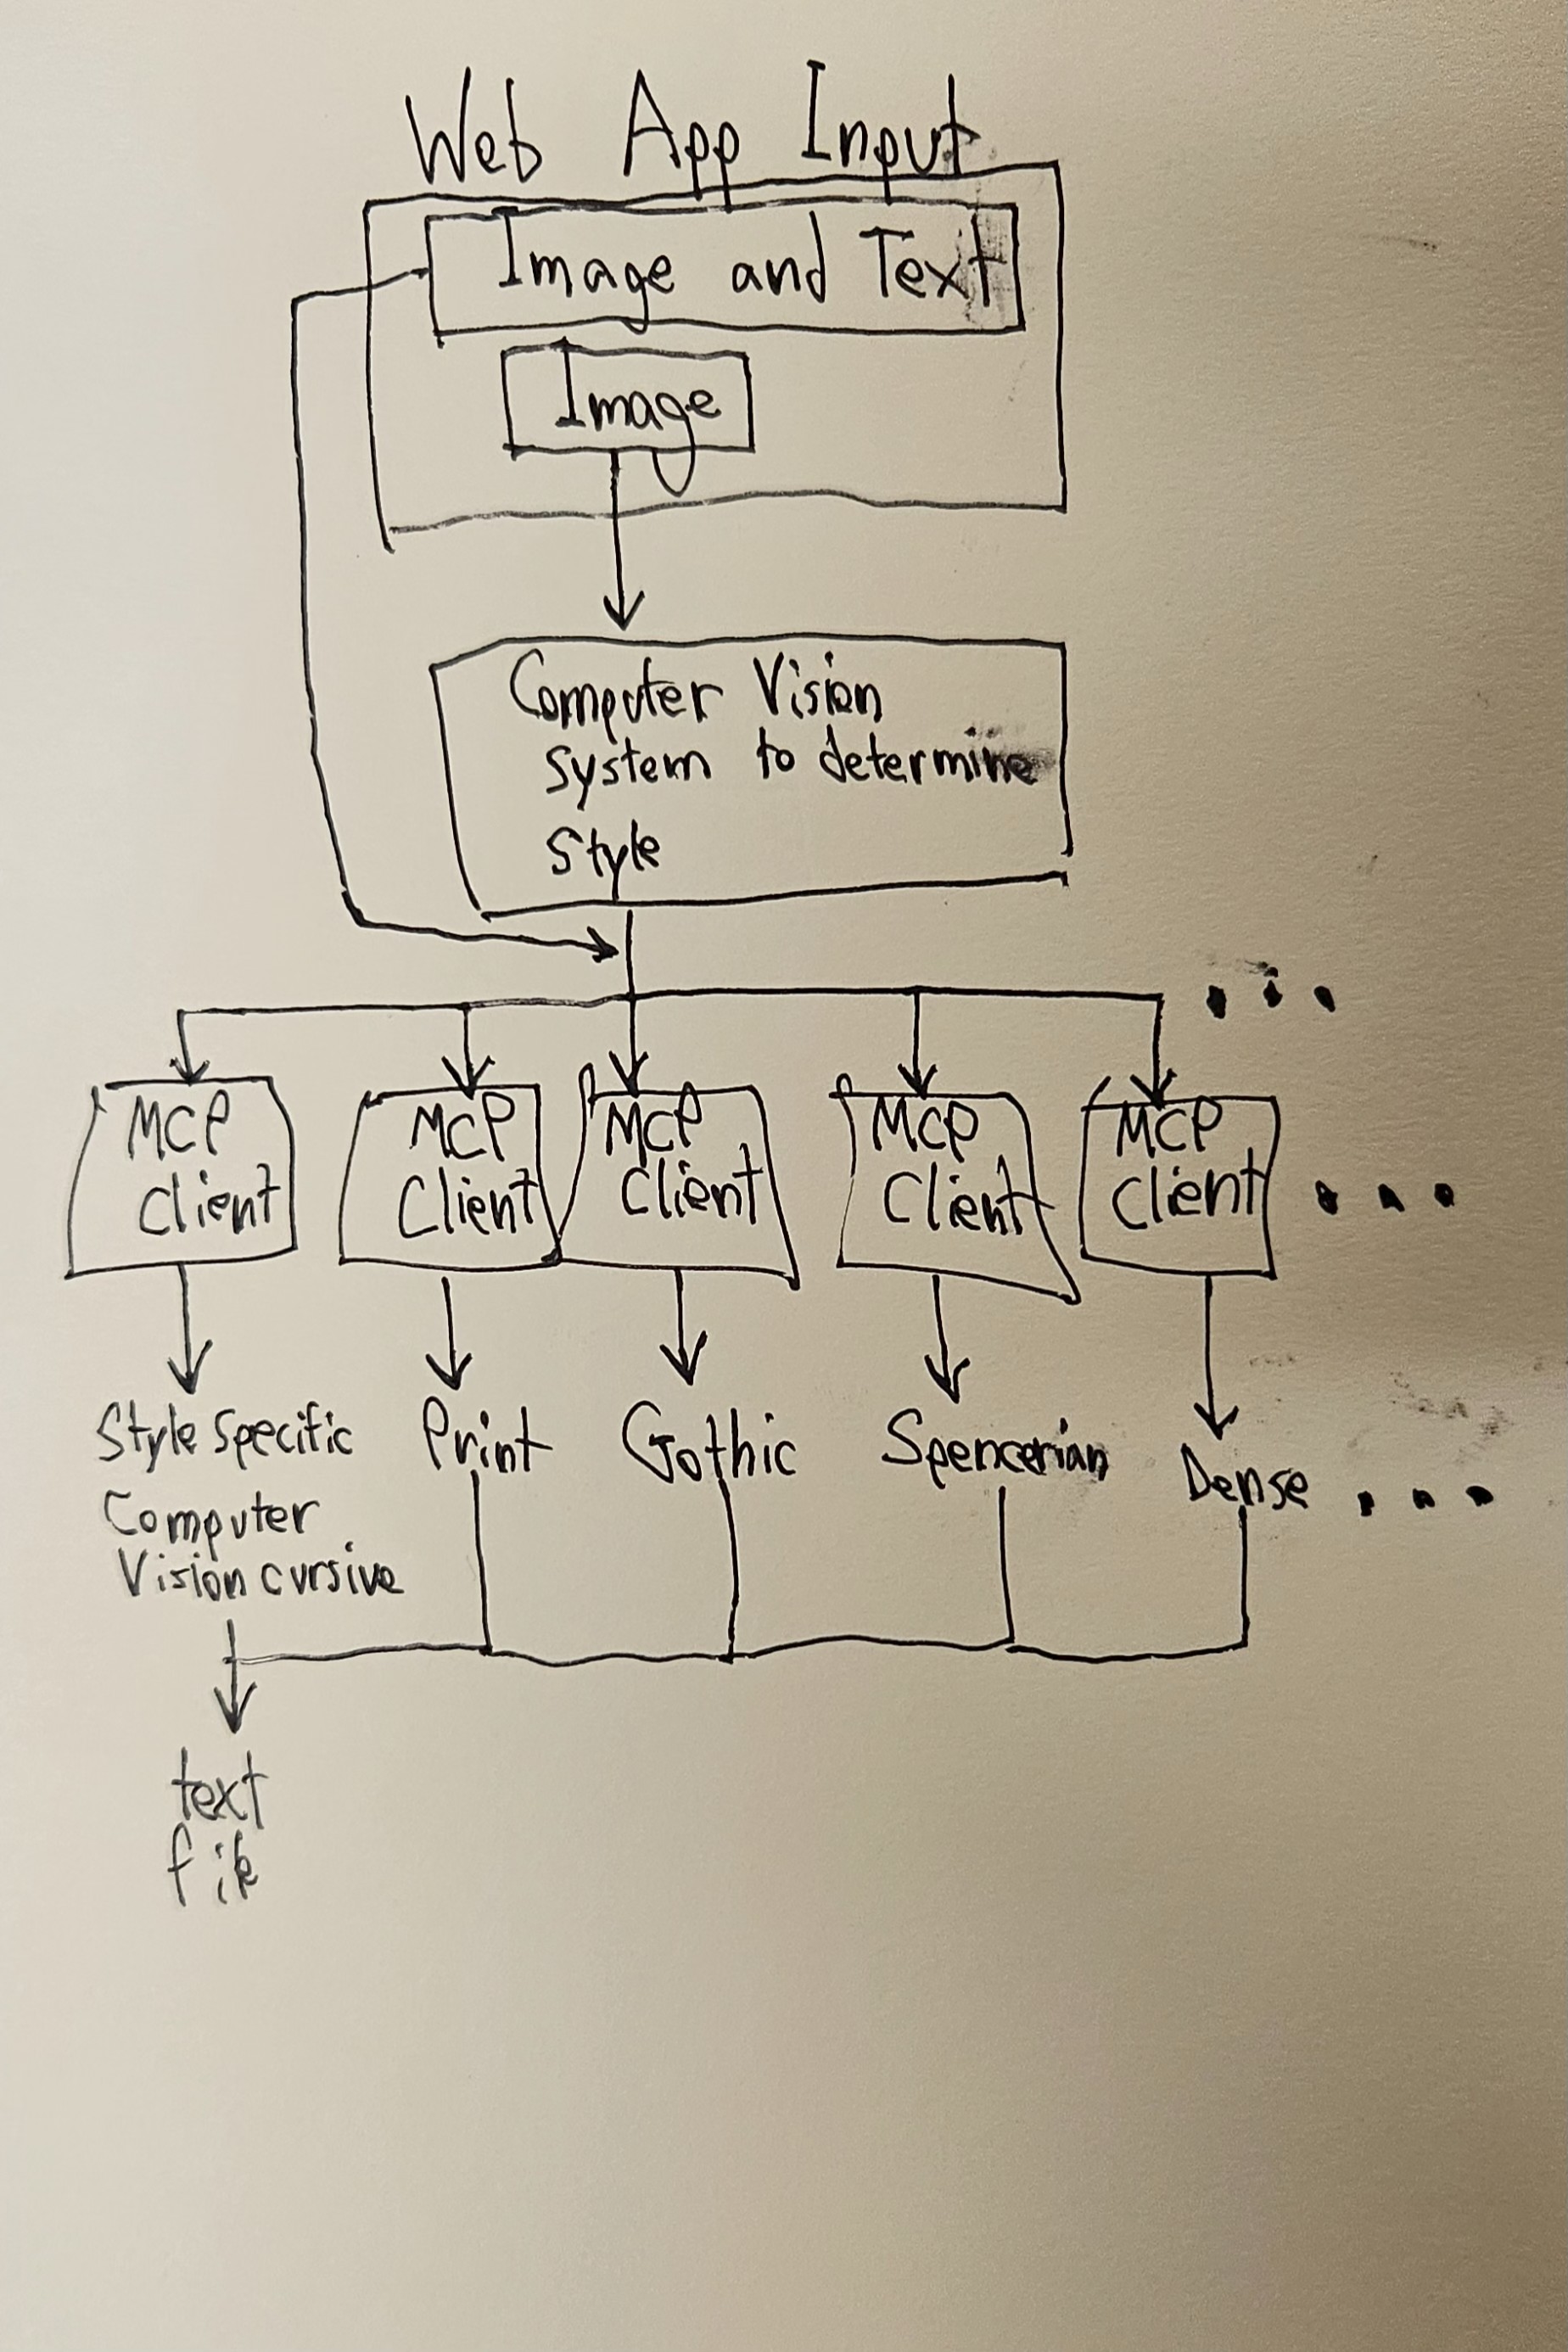 Web App Input
Image and Text
Image
Computer Vision
system to determine
Style
...
MCP
Client
MCP
Client
MCP
Client
MCP
Client
MCP
Client
...
Style Specific
Computer
Vision cursive
Print
Gothic
Spencerian
Dense ...
text
file